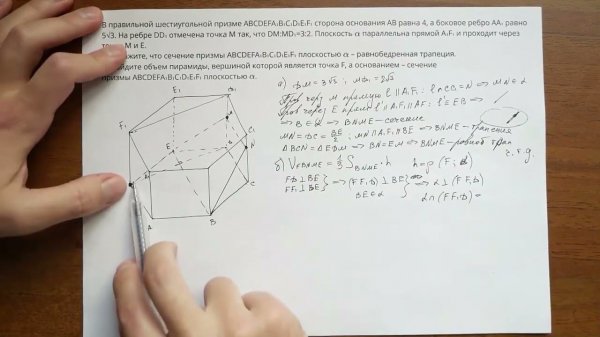 В правильной шестиугольной призме ABCDEFA₁B₁C₁D₁E₁F₁ сторона основания AB равна 4, а боковое ребро AA₁ равно
5√3. На ребре DD₁ отмечена точка M так, что DM:MD₁=3:2. Плоскость α параллельна прямой A₁F₁ и проходит через
M и E.
что сечение призмы ABCDEFA₁B₁C₁D₁E₁F₁ плоскостью α – равнобедренная трапеция.
пирамиды, вершиной которой является точка F, а основанием – сечение
призмы ABCDEFA₁B₁C₁D₁E₁F₁ плоскостью α.
а) DM = 3√3 ; MD₁ = 2√3
через M прямую l ∥ A₁F₁ : l∩CC₁=N ⇒ MN∈α
через E прямую l' ∥ A₁F₁ ∥ AF : l'≡EB ⇒
⇒ B∈α ⇒ BNME – сечение
MN = DC = BE/2 ; MN∥A₁F₁∥BE ⇒ BNME – трапеция
ΔBCN = ΔEDM ⇒ BN=EM ⇒ BNME – равноб. трап.
ч.т.д.
б) V_FBNME = 1/3 S_BNME · h h = ρ(F;α)
FD⊥BE
FF₁⊥BE
⇒ (FF₁D)⊥BE
BE∈α
⇒ α⊥(FF₁D)
α∩(FF₁D) =
E₁
D₁
F₁
C₁
M
N
E
D
C
A
B